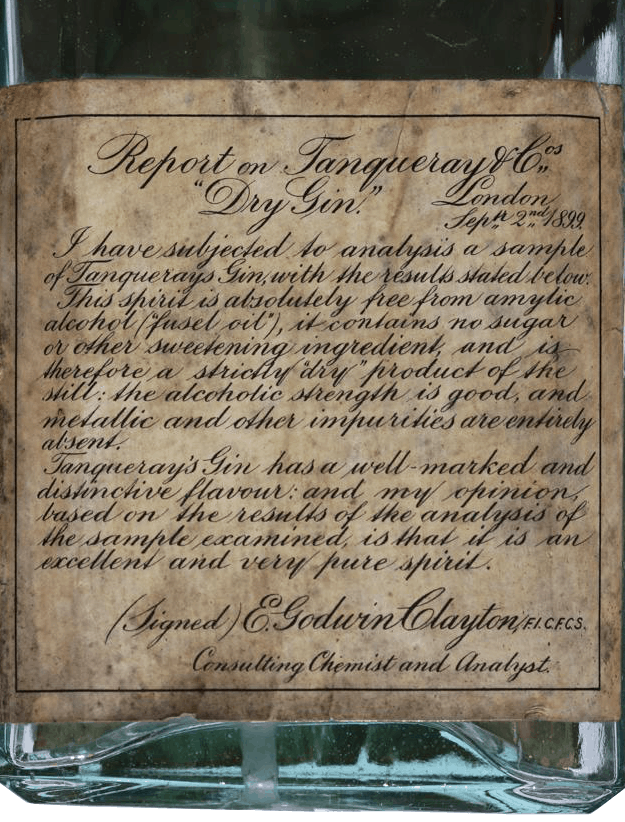 Report on Tanqueray & Cos
"Dry Gin."
London
Septh 2nd 1899.
I have subjected to analysis a sample
of Tanquerays Gin, with the results stated below.
This spirit is absolutely free from amylic
alcohol ("fusel oil"), it contains no sugar
or other sweetening ingredient, and is
therefore a strictly "dry" product of the
still: the alcoholic strength is good, and
metallic and other impurities are entirely
absent.
Tanqueray's Gin has a well-marked and
distinctive flavour: and my opinion,
based on the results of the analysis of
the sample examined, is that it is an
excellent and very pure spirit.
(Signed) E. Godwin Clayton, F.I.C. F.C.S.
Consulting Chemist and Analyst.